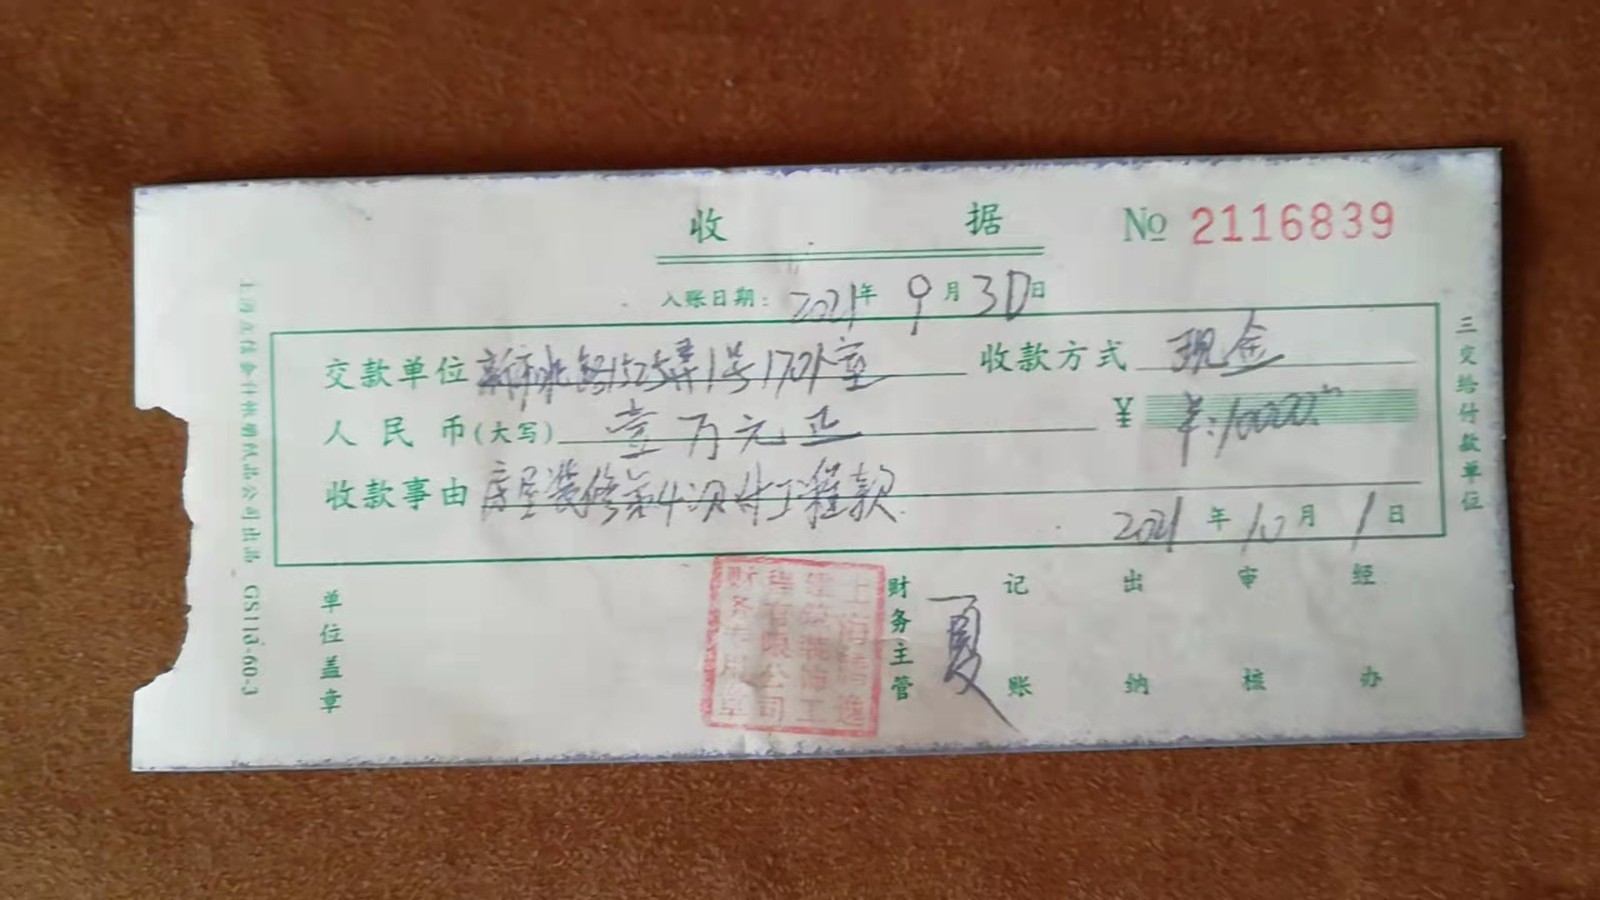 收 据
No 2116839
入账日期: 2021年 9月30日
交款单位 新市北路1525弄1号1701室 收款方式 现金
人民币(大写) 壹万元正 ¥ ¥:10000.00
收款事由 房屋装修第4次付工程款
2021年10月1日
三交给付款单位
单位盖章
财务主管 夏
记账
出纳
审核
经办
上海
建筑装饰工
程有限公司
财务专用章
GS113-60-3